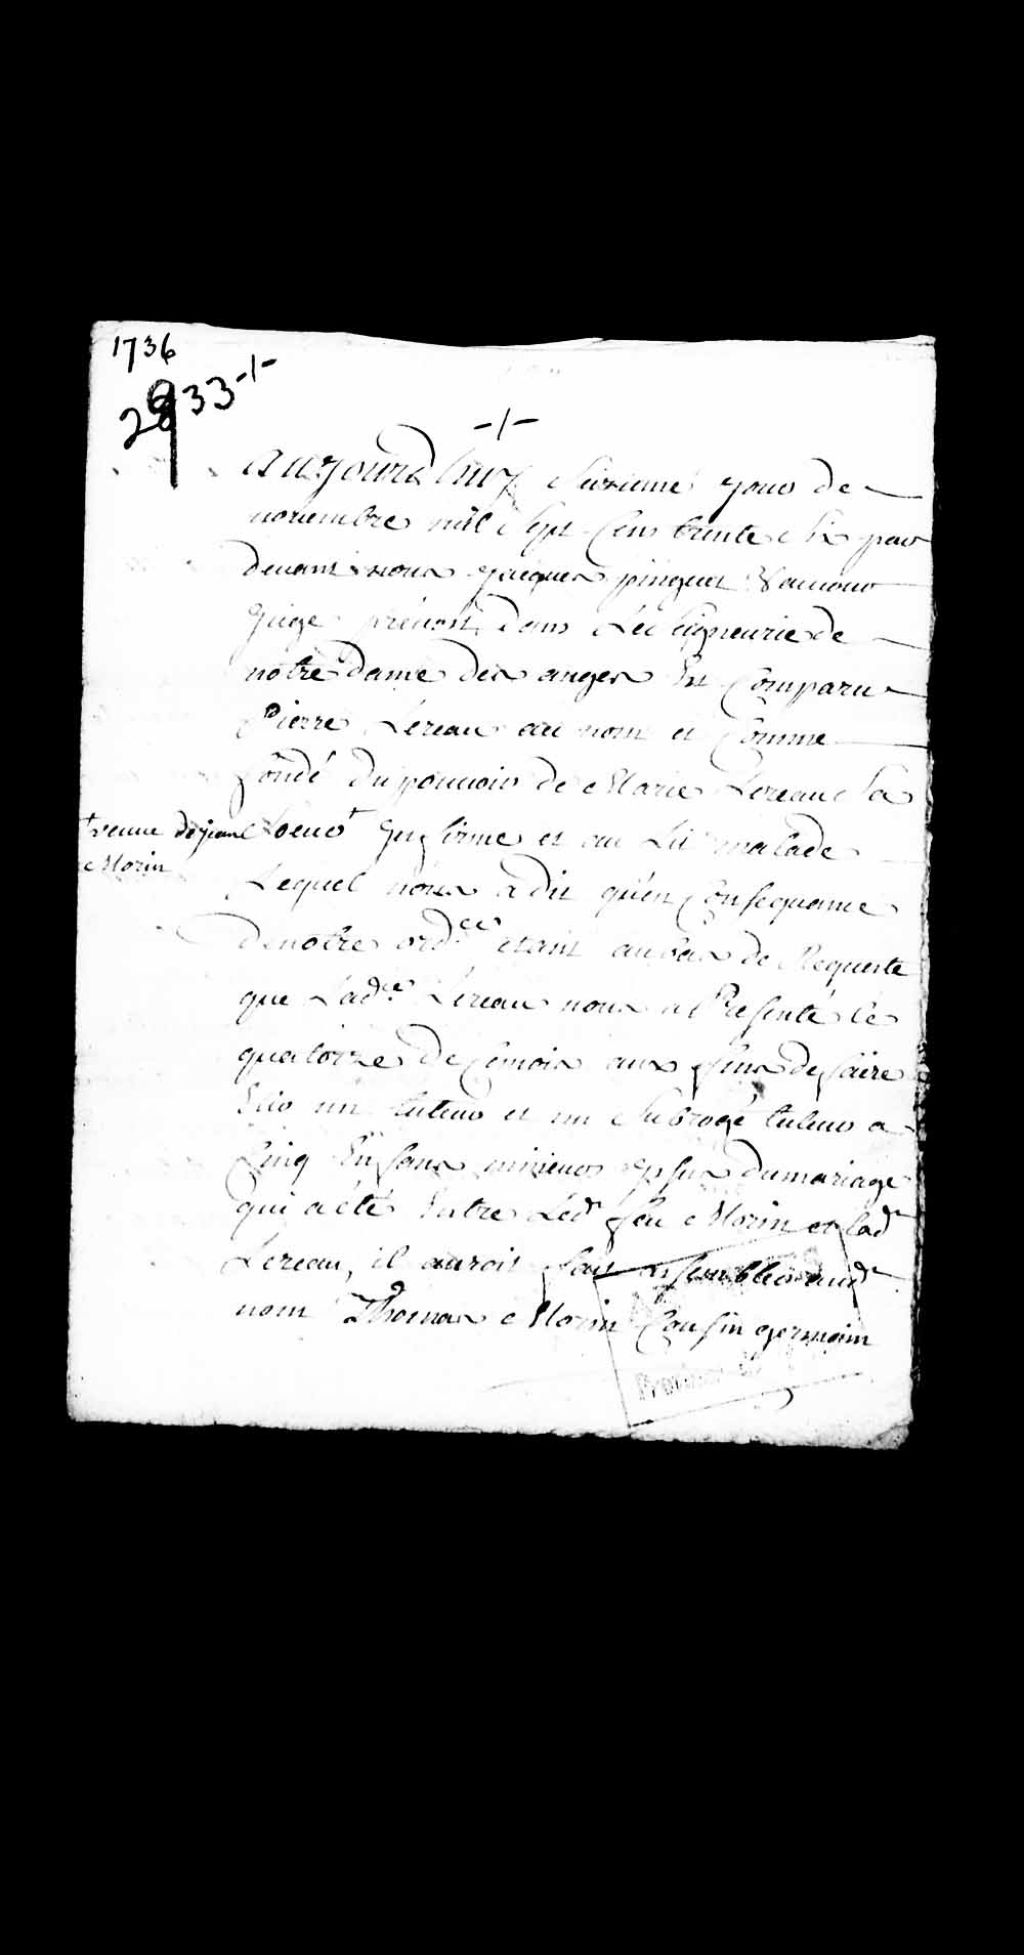 1736
2933-1-
-/-
aujourdhuy seizieme jour de
novembre mil sept cens trente six par
devant nous jacques pinguet Vaucour
juge prévost dans la seigneurie de
notre Dame des anges Est Comparu
Pierre Lereau au nom et Comme
fondé du pouvoir de Marie Lereau sa
soeur † Infirme et au Lit malade
† veuve de jean
Morin
Lequel nous a dit qu'en Consequance
de notre ord.ce étant au bas de Requeste
que Lad.te Lereau nous a Presenté le
quatorze de Cemois aux fins de faire
Elir un tuteur et un subrogé tuteur a
Cinq Enfans mineurs issus du mariage
qui a eté Entre Led.t feu Morin et lad.t
Lereau, il auroit fait assembler aud.t
nom Thomas Morin Cousin germain